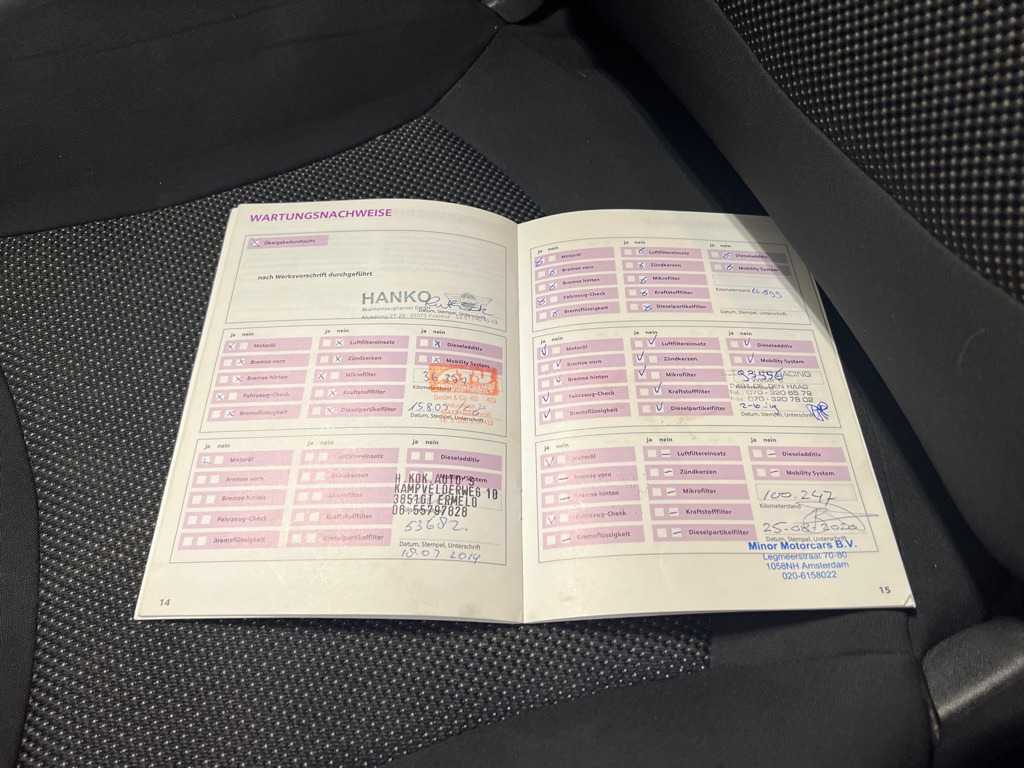 WARTUNGSNACHWEISE
Übergabedurchsicht
nach Werksvorschrift durchgeführt
HANKO
Datum, Stempel, Unterschrift
ja nein
ja nein
ja nein
Motoröl
Luftfiltereinsatz
Dieseladditiv
Bremse vorn
Zündkerzen
Mobility System
Bremse hinten
Mikrofilter
Fahrzeug-Check
Kraftstofffilter
Kilometerstand
Bremsflüssigkeit
Dieselpartikelfilter
Datum, Stempel, Unterschrift
ja nein
ja nein
ja nein
Motoröl
Luftfiltereinsatz
Dieseladditiv
Bremse vorn
Zündkerzen
Bremse hinten
Mikrofilter
H.KOK AUTO'S
KAMPVELDERWEG 10
3851GT ERMELO
06-55797828
Fahrzeug-Check
Kraftstofffilter
53682
Bremsflüssigkeit
Dieselpartikelfilter
Datum, Stempel, Unterschrift
18.07 2014
14
ja nein
ja nein
ja nein
Motoröl
Luftfiltereinsatz
Dieseladditiv
Bremse vorn
Zündkerzen
Mobility System
Bremse hinten
Mikrofilter
Fahrzeug-Check
Kraftstofffilter
Kilometerstand
Bremsflüssigkeit
Dieselpartikelfilter
Datum, Stempel, Unterschrift
ja nein
ja nein
ja nein
Motoröl
Luftfiltereinsatz
Dieseladditiv
Bremse vorn
Zündkerzen
Mobility System
Bremse hinten
Mikrofilter
93556
Fahrzeug-Check
Kraftstofffilter
DEN HAAG
Tel.: 070 - 320 65 79
Fax: 070 - 320 78 02
Bremsflüssigkeit
Dieselpartikelfilter
Datum, Stempel, Unterschrift
ja nein
ja nein
ja nein
Motoröl
Luftfiltereinsatz
Dieseladditiv
Bremse vorn
Zündkerzen
Mobility System
Bremse hinten
Mikrofilter
100.247
Kilometerstand
Fahrzeug-Check
Kraftstofffilter
25-08-2020
Bremsflüssigkeit
Dieselpartikelfilter
Datum, Stempel, Unterschrift
Minor Motorcars B.V.
Legmeerstraat 70-80
1058NH Amsterdam
020-6158022
15